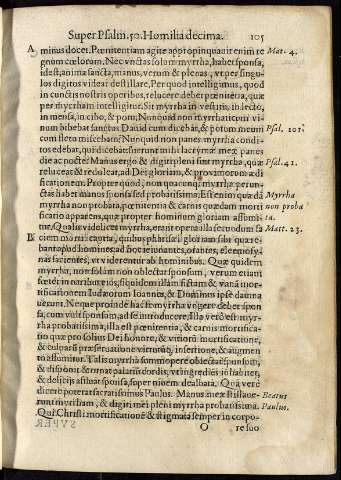 Super Psalm.50. Homilia decima. 105
A minus docet. Pœnitentiam agite appropinquauit enim re Mat. 4.
gnum cœlorum. Nec vnctas solùm myrrha, habet sponsa,
idest, anima sancta, manus, verum & plenas, vt per singu-
los digitos videat destillare. Per quod intelligimus, quod
in cunctis nostris operibus, relucere debet pœnitentia, quæ
per myrrham intelligitur. Sit myrrha in vestitu, in lecto,
in mensa, in cibo, & potu. Nunquid non myrrhatum vi-
num bibebat sanctus Dauid cum dicebat, & potum meum Psal. 101.
cum fletu miscebam? Nunquid non panes myrrha condi-
tos edebat, qui dicebat fuerunt mihi lacrymæ meæ panes
die ac nocte? Manus ergo & digiti pleni sint myrrha, quæ Psal. 41.
reluceat & redoleat, ad Dei gloriam, & proximorum ædi
ficationem. Propter quod, non quacunque myrrha perun-
ctas habet manus sponsa sed probatissima. Est enim quædã Myrrha
myrrha non probata, pœnitentia & carnis quædam morti non proba
ficatio apparens, quæ propter hominum gloriam assumi- ta.
tur. Qualis videlicet myrrha, erant opera illa secundum fa Mat. 23.
B ciem mortificantia, quibus pharisæi gloriam sibi quære-
bant apud homines, ad hoc ieiunantes, orantes, eleemosy-
nas facientes, vt viderentur ab hominibus. Quæ quidem
myrrha, non solùm non oblectat sponsum, verum etiam
fœtet in naribus eius, siquidem illam fictam & vanã mor-
tificationem Iudæorum Ioannes, & Dominus ipse damna
uerunt. Neque proinde hac se myrrha vngere debet spon
sa, cum vult sponsum, ad se introducere. Illa verò est myr-
rha probatissima, illa est pœnitentia, & carnis mortifica-
tio quæ pro solius Dei honore, & vitiorũ mortificatione,
& culparũ præseruatione virtutũq; insertione, & augmen
to assumitur. Talis myrrha summopere oblectat sponsum,
& disponit & ornat palatiũ cordis, vt ingrediens iò habitet,
& delicijs affluat sponsa, super niuem dealbata. Quã verè
dicere poterat sacratissimus Paulus. Manus meæ stillaue- Beatus
runt myrrham, & digiti mei pleni myrrha probatissima. Paulus.
Qui Christi mortificationẽ & stigmata semper in corpo-
O re suo